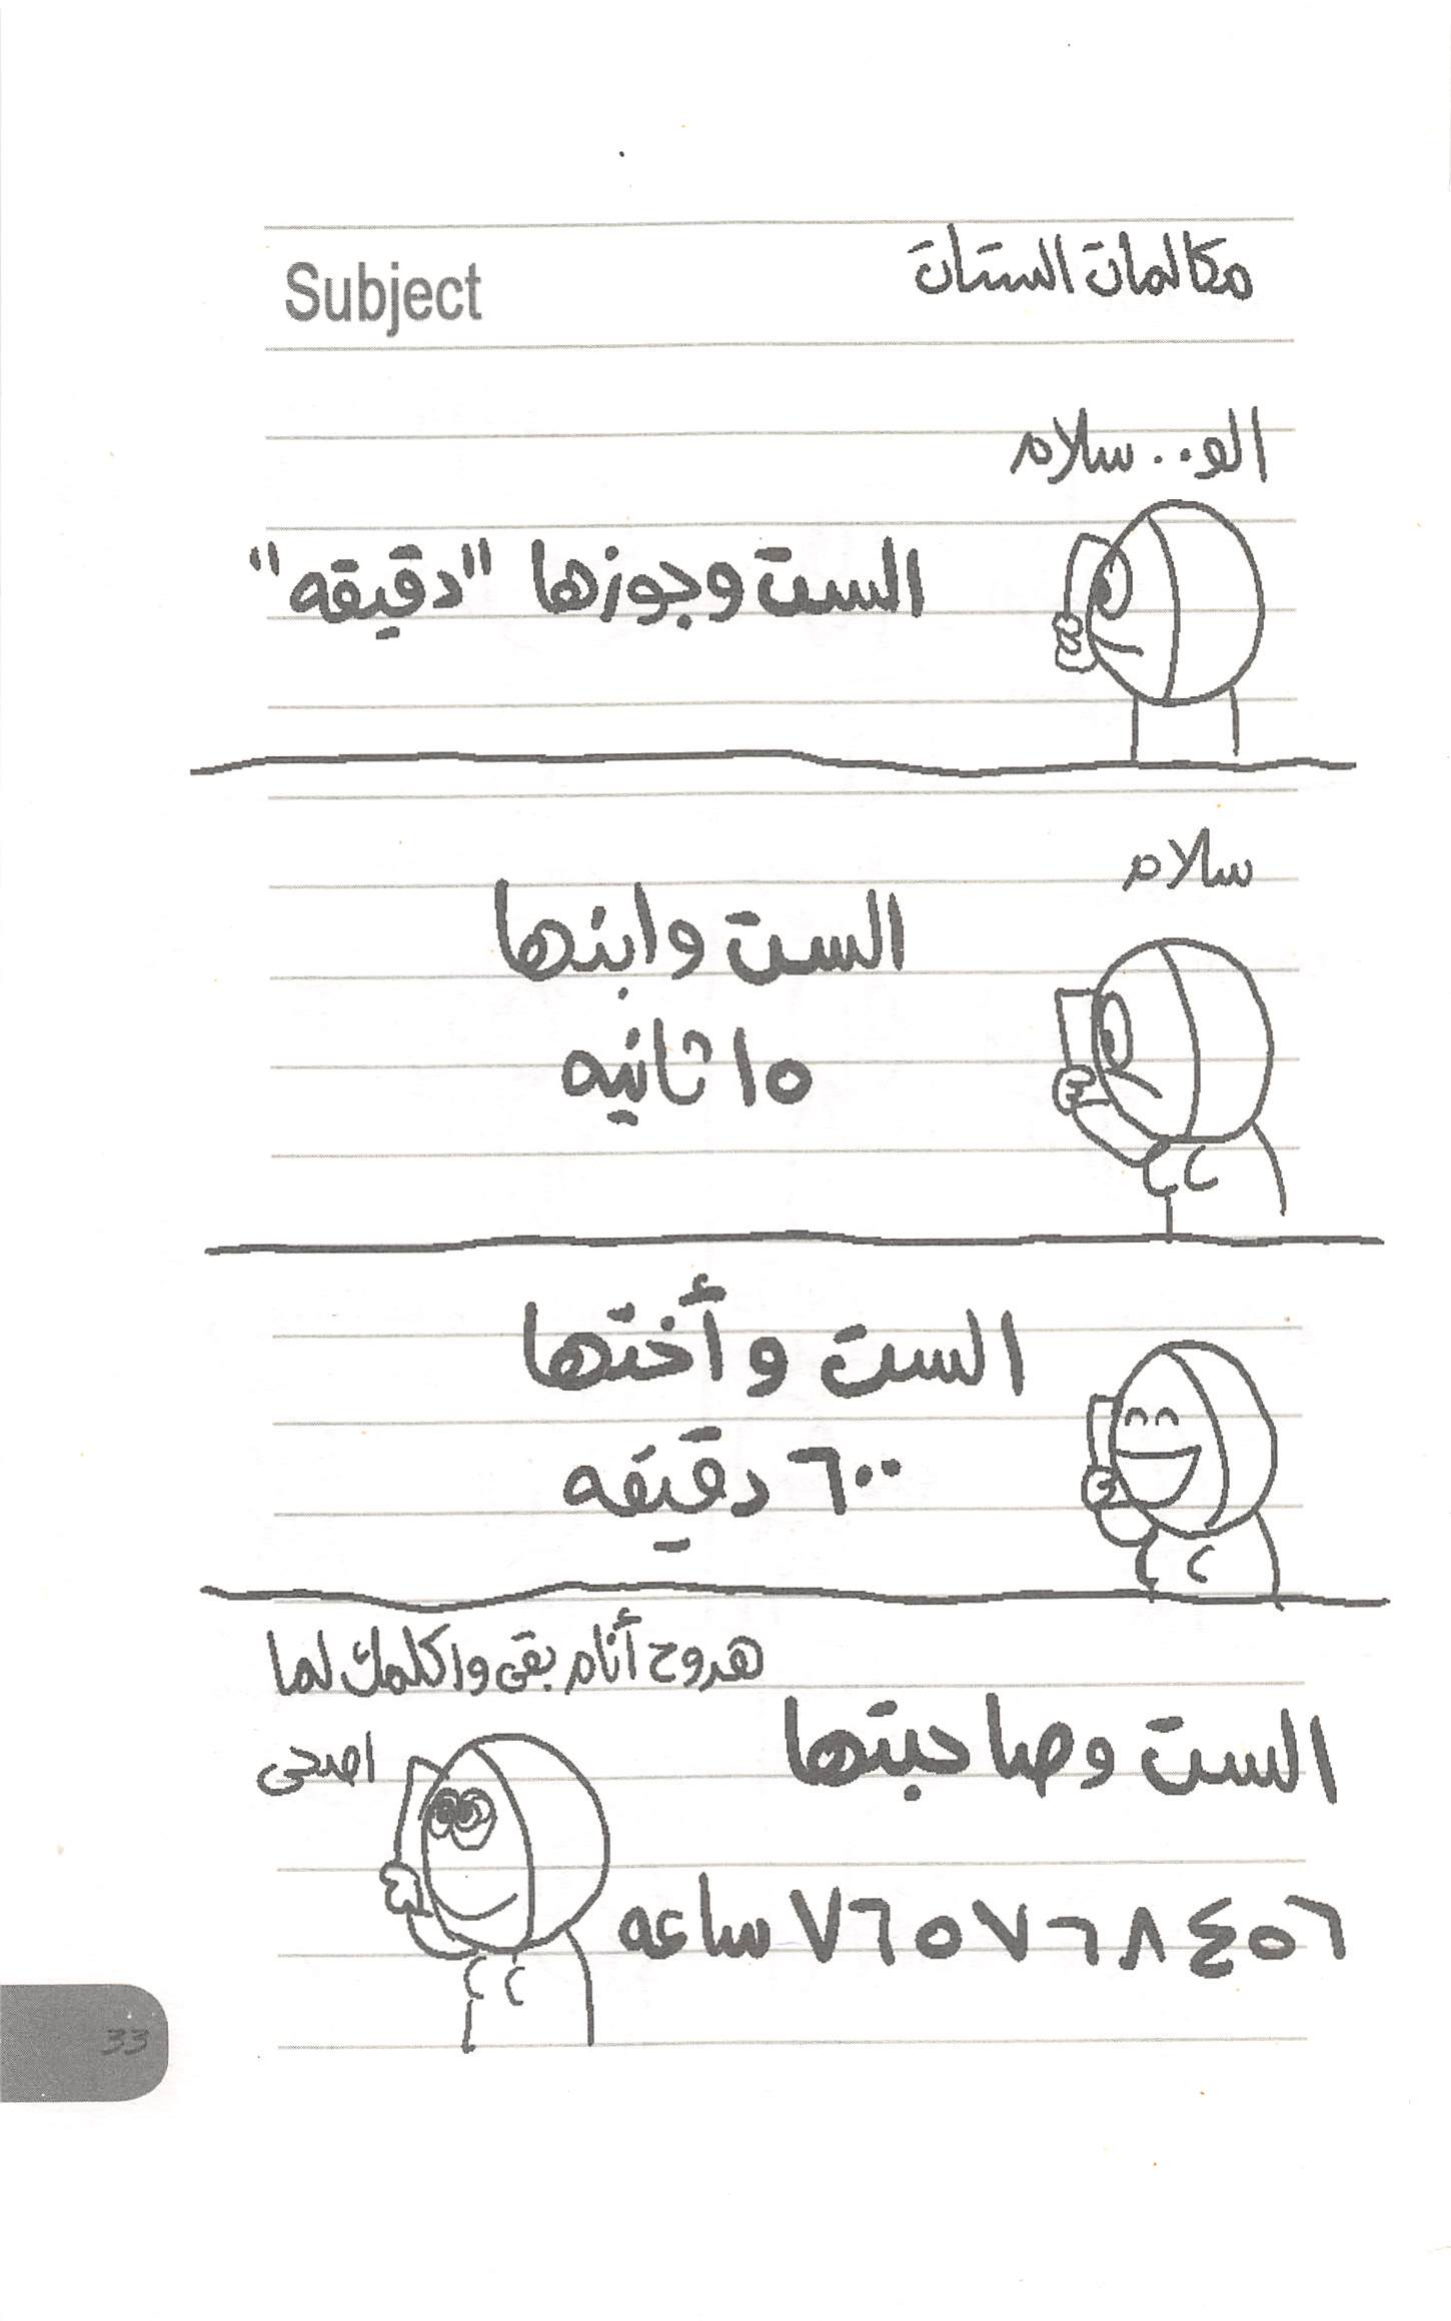 Subject
مكالمات الستات
الو.. سلام
الست وجوزها "دقيقه"
سلام
الست وابنها
١٥ ثانيه
الست وأختها
٦٠٠ دقيقه
هروح أنام بقى واكلمك لما
اصحى
الست وصاحبتها
٧٦٥٧٦٨٤٥٦ ساعه
33